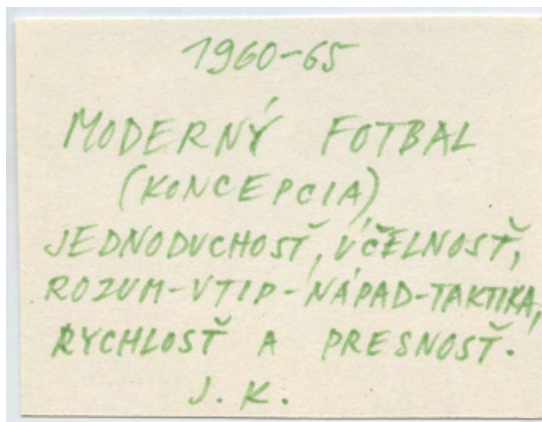 1960-65
MODERNÝ FOTBAL
(KONCEPCIA)
JEDNODUCHOSŤ, ÚČELNOSŤ,
ROZUM-VTIP-NÁPAD-TAKTIKA,
RYCHLOSŤ A PRESNOSŤ.
J. K.